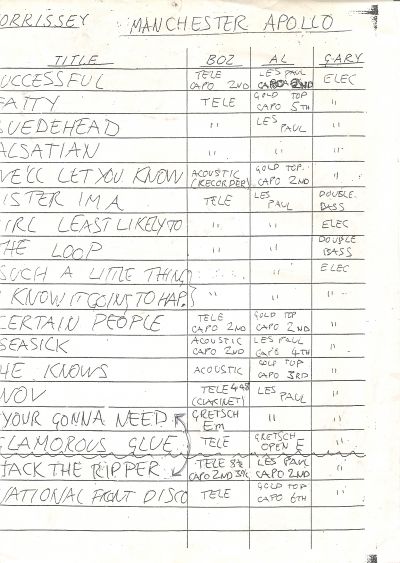 ORRISSEY MANCHESTER APOLLO
TITLE BOZ AL GARY
UCCESSFUL TELE CAPO 2ND LES PAUL CAPO 2ND ELEC
FATTY TELE GOLD TOP CAPO 5TH "
UEDEHEAD " LES PAUL "
ALSATIAN " " "
WE'LL LET YOU KNOW ACOUSTIC (RECORDER) GOLD TOP CAPO 2ND "
ISTER IM A TELE LES PAUL DOUBLE BASS
IRL LEAST LIKELY TO " " ELEC
HE LOOP " " DOUBLE BASS
SUCH A LITTLE THING " " ELEC
KNOW IT GOING TO HAP. " " "
CERTAIN PEOPLE TELE CAPO 2ND GOLD TOP CAPO 2ND "
SEASICK ACOUSTIC CAPO 2ND LES PAUL CAPO 4TH "
HE KNOWS ACOUSTIC GOLD TOP CAPO 3RD "
NOV TELE (CLARINET) LES PAUL "
YOUR GONNA NEED GRETSCH Em " "
GLAMOROUS GLUE TELE GRETSCH OPEN E "
JACK THE RIPPER TELE CAPO 2ND LES PAUL CAPO 2ND "
NATIONAL FRONT DISCO TELE GOLD TOP CAPO 6TH "